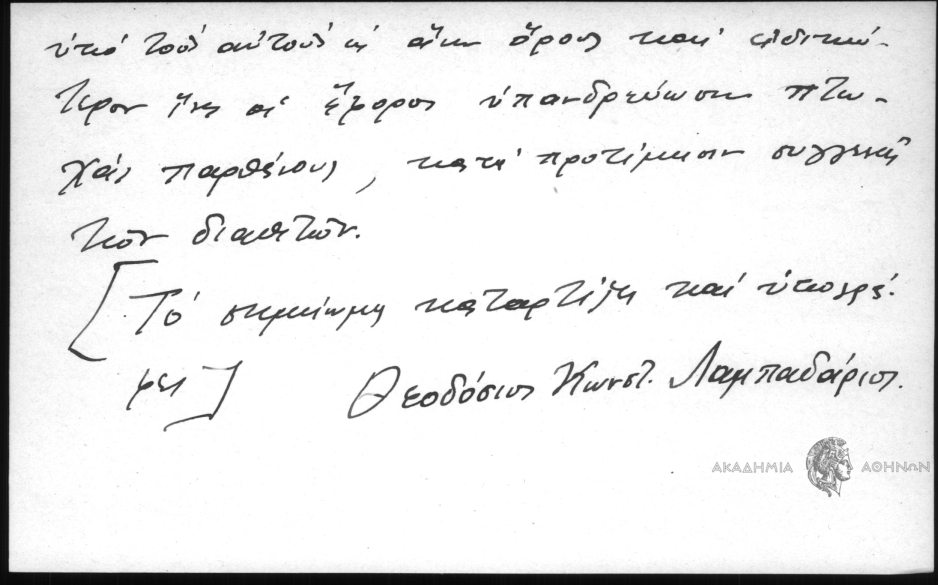 ὑπό τούς αὐτούς ὡς ἄνω ὅρους καί εἰδικώ-
τερον ἵνα οἱ ἔφοροι ὑπανδρεύωσιν πτω-
χάς παρθένους, κατά προτίμησιν συγγενεῖς
τῶν διαθετῶν.
[Τό σημείωμα καταρτίζει καί ὑπογρά-
φει] Θεοδόσιος Κωνστ. Λαμπαδάριος.
ΑΚΑΔΗΜΙΑ ΑΘΗΝΩΝ